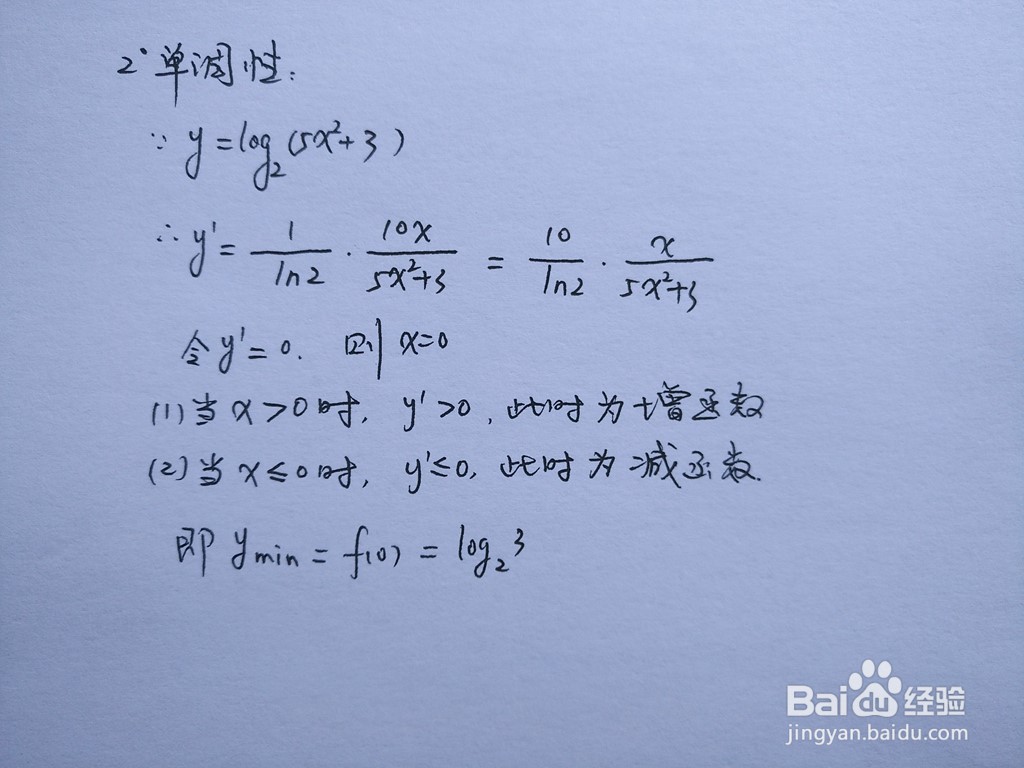 2° 单调性:
∵ y = log₂(5x²+3)
∴ y' = 1/ln2 · 10x/(5x²+3) = 10/ln2 · x/(5x²+3)
令 y' = 0. 则 x=0
(1) 当 x>0时, y'>0, 此时为增函数
(2) 当 x≤0时, y'≤0, 此时为减函数.
即 ymin = f(0) = log₂3
Baidu经验
jingyan.baidu.com